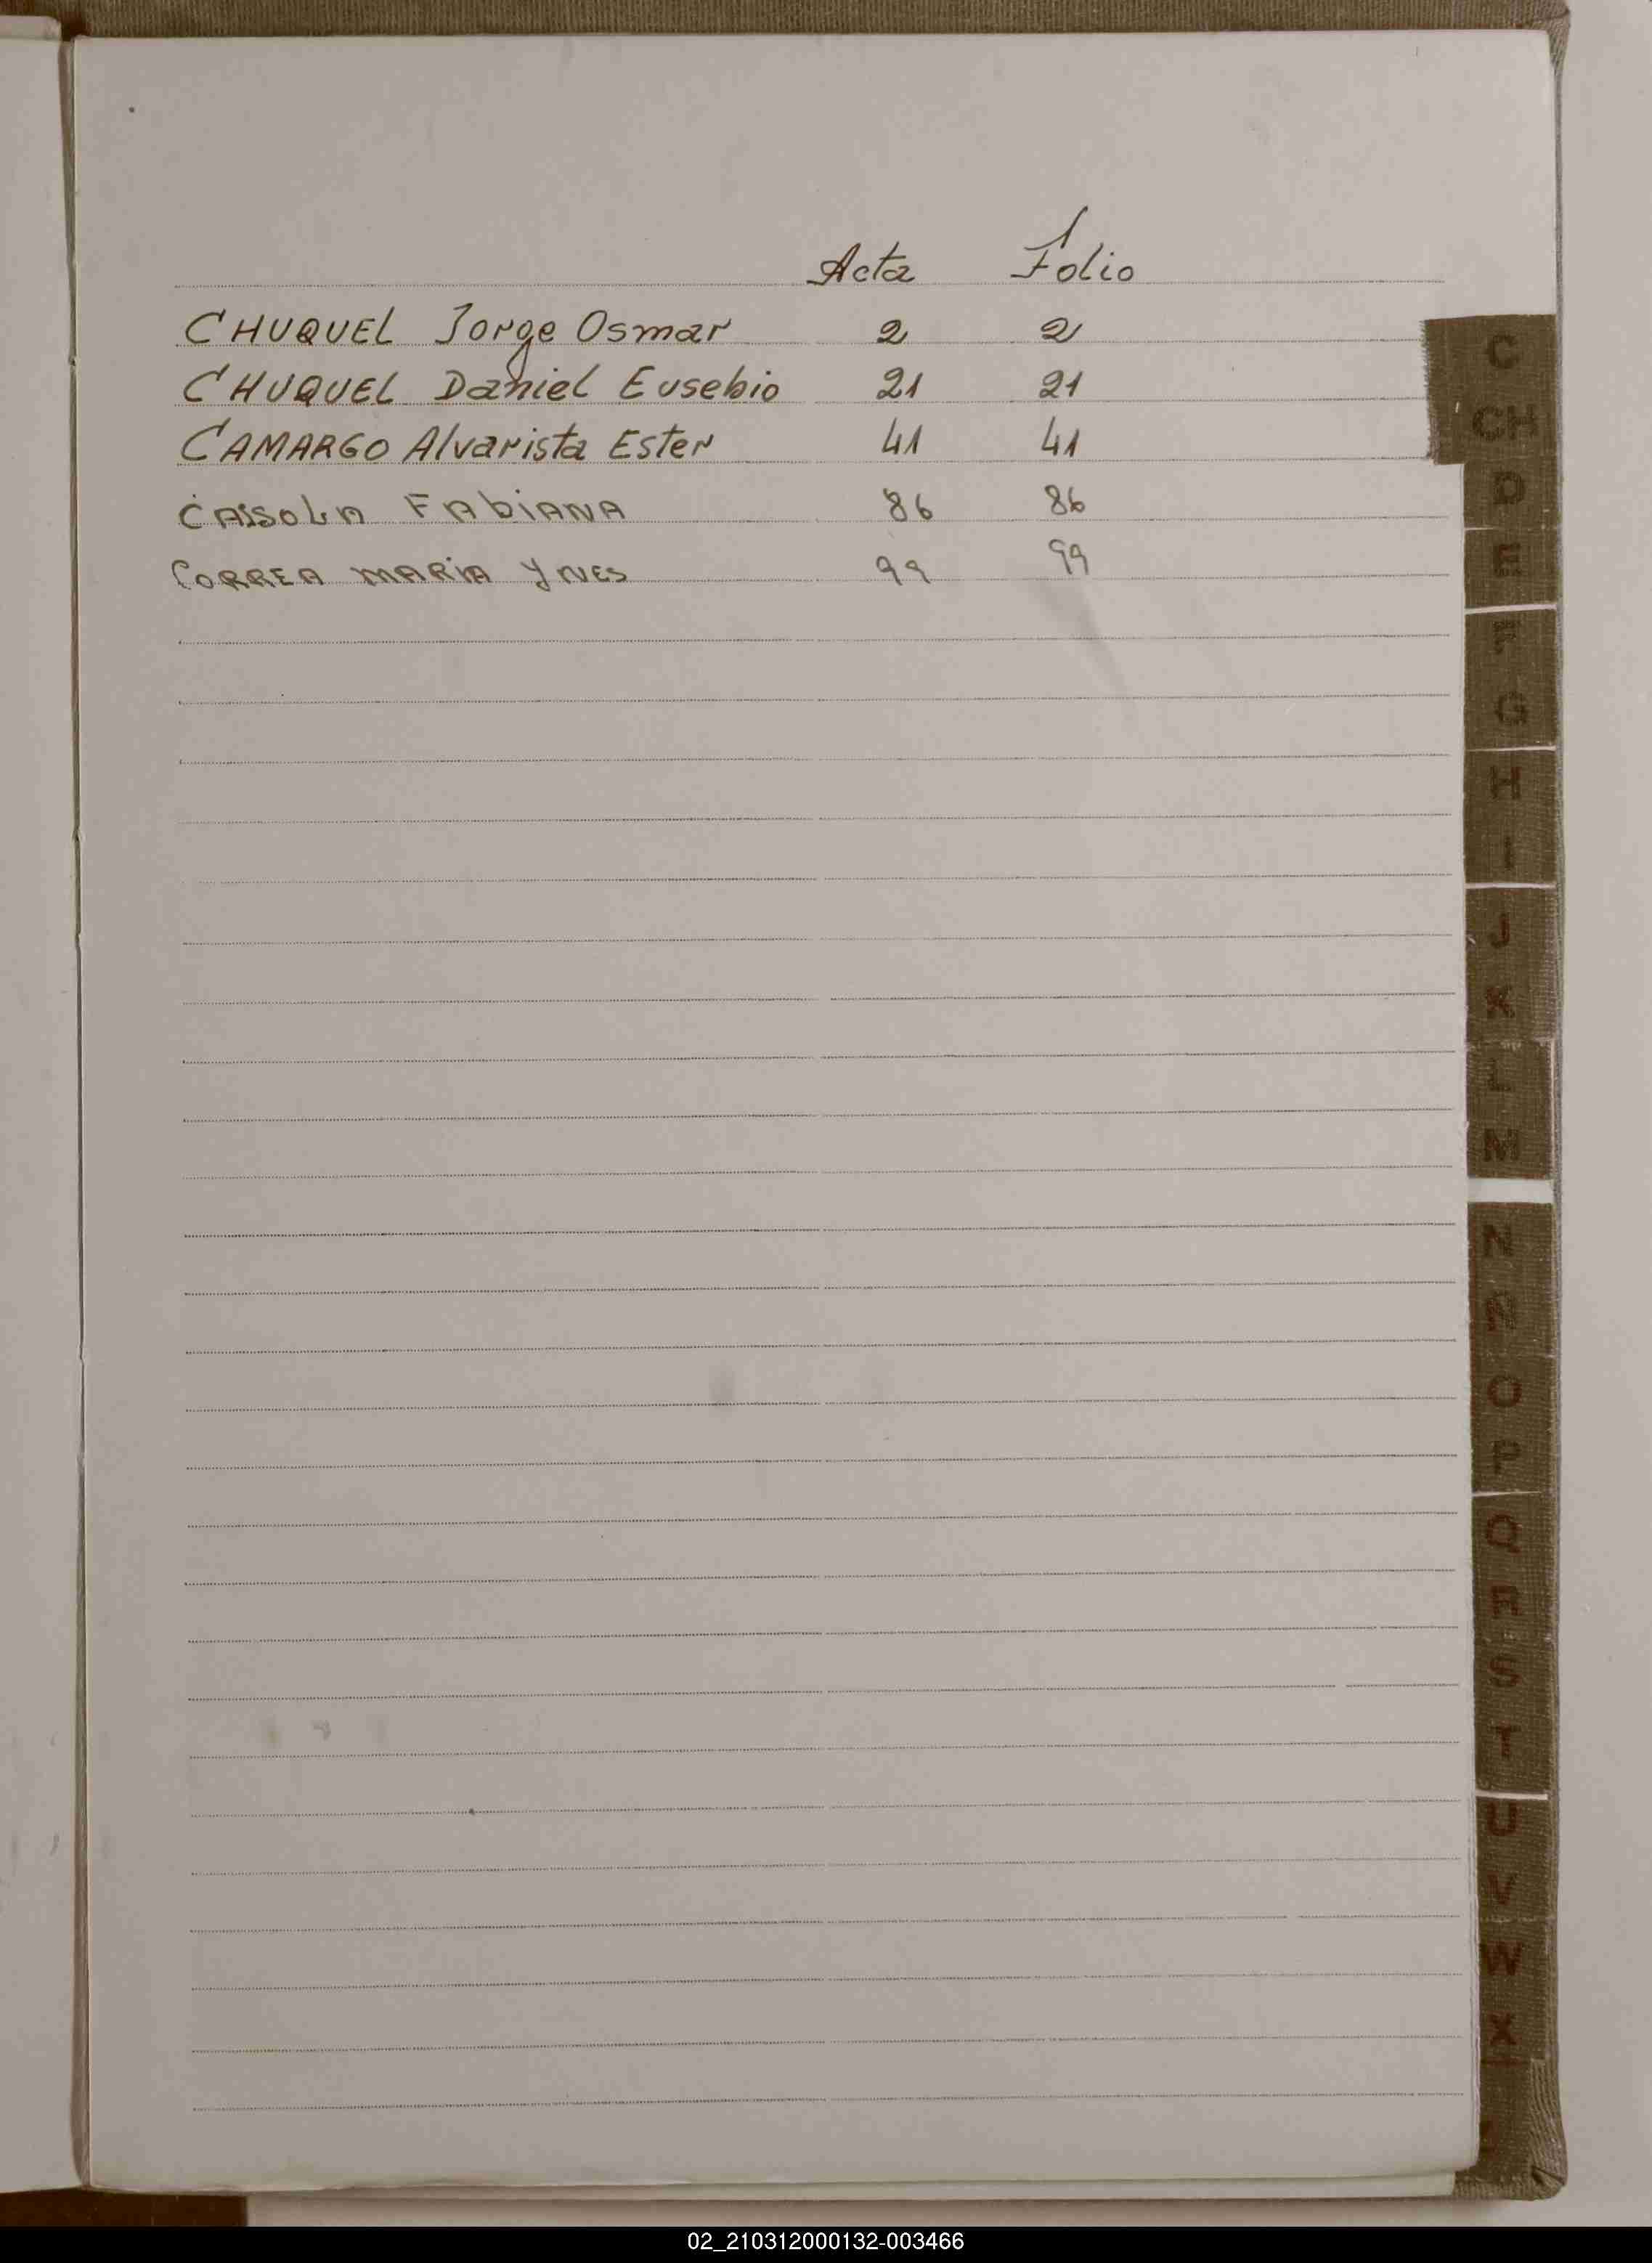 Acta Folio
CHUQUEL Jorge Osmar 2 2
CHUQUEL Daniel Eusebio 21 21
CAMARGO Alvarista Ester 41 41
CASSOLA FAbiANA 86 86
CORREA MARiA YNES 99 99
C
CH
D
E
F
G
H
I
J
K
L
M
N
Ñ
O
P
Q
R
S
T
U
V
W
X
02_210312000132-003466